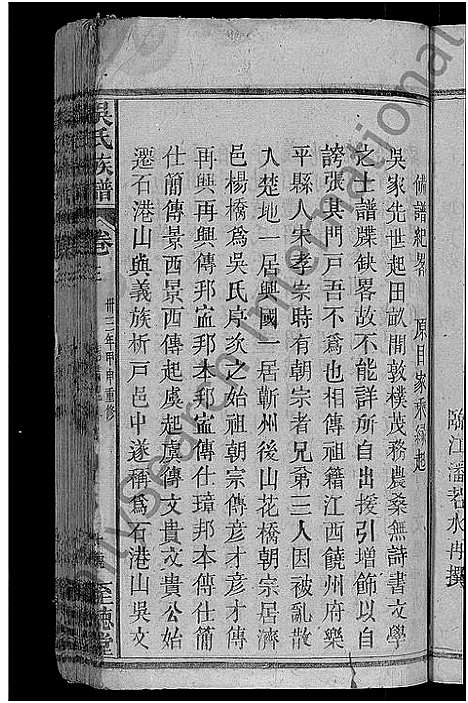 臨江潘若水冉撰
修譜紀畧 原目家乘緣起
吳家先世起田畝間敦樸茂務農桑無詩書文學
之士譜牒缺畧故不能詳所自出援引增飾以自
誇張其門戸吾不爲也相傳祖籍江西饒州府樂
平縣人宋孝宗時有朝宗者兄弟三人因被亂散
入楚地一居興國一居蘄州後山花橋朝宗居濟
邑楊橋爲吳氏序次之始祖朝宗傳彦才彦才傳
再興再興傳邦寍邦本邦寍傳仕璋邦本傳仕簡
仕簡傳景西景西傳起虞起虞傳文貴文貴公始
遷石港山與義族析戸邑中遂稱爲石港山吳文
吳氏族譜 卷三 卅三年甲申重修 至德堂
Only/Search International